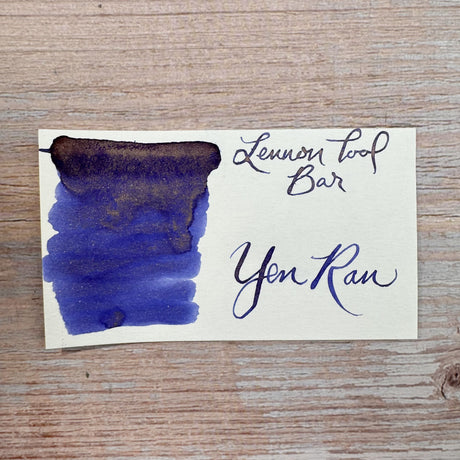 Lennon Tool
Bar
Yen Ran